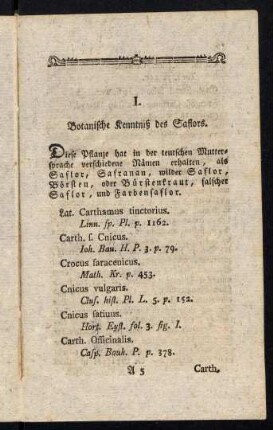 I.
Botanische Kenntniß des Saflors.
Diese Pflanze hat in der teutschen Mutter-
sprache verschiedene Nämen erhalten, als
Saflor, Safranan, wilder Saflor,
Börsten, oder Bürstenkraut, falscher
Saflor, und Farbensaflor.
Lat. Carthamus tinctorius.
Linn. sp. Pl. p. 1162.
Carth. s. Cnicus.
Ioh. Bau. H. P. 3. p. 79.
Crocus saracenicus.
Math. Kr. p. 453.
Cnicus vulgaris.
Cluſ. hiſt. Pl. L. 5. p. 152.
Cnicus satiuus.
Hort. Eyſt. fol. 3. fig. I.
Carth. Officinalis.
Caſp. Bauh. P. p. 378.
A 5 Carth.